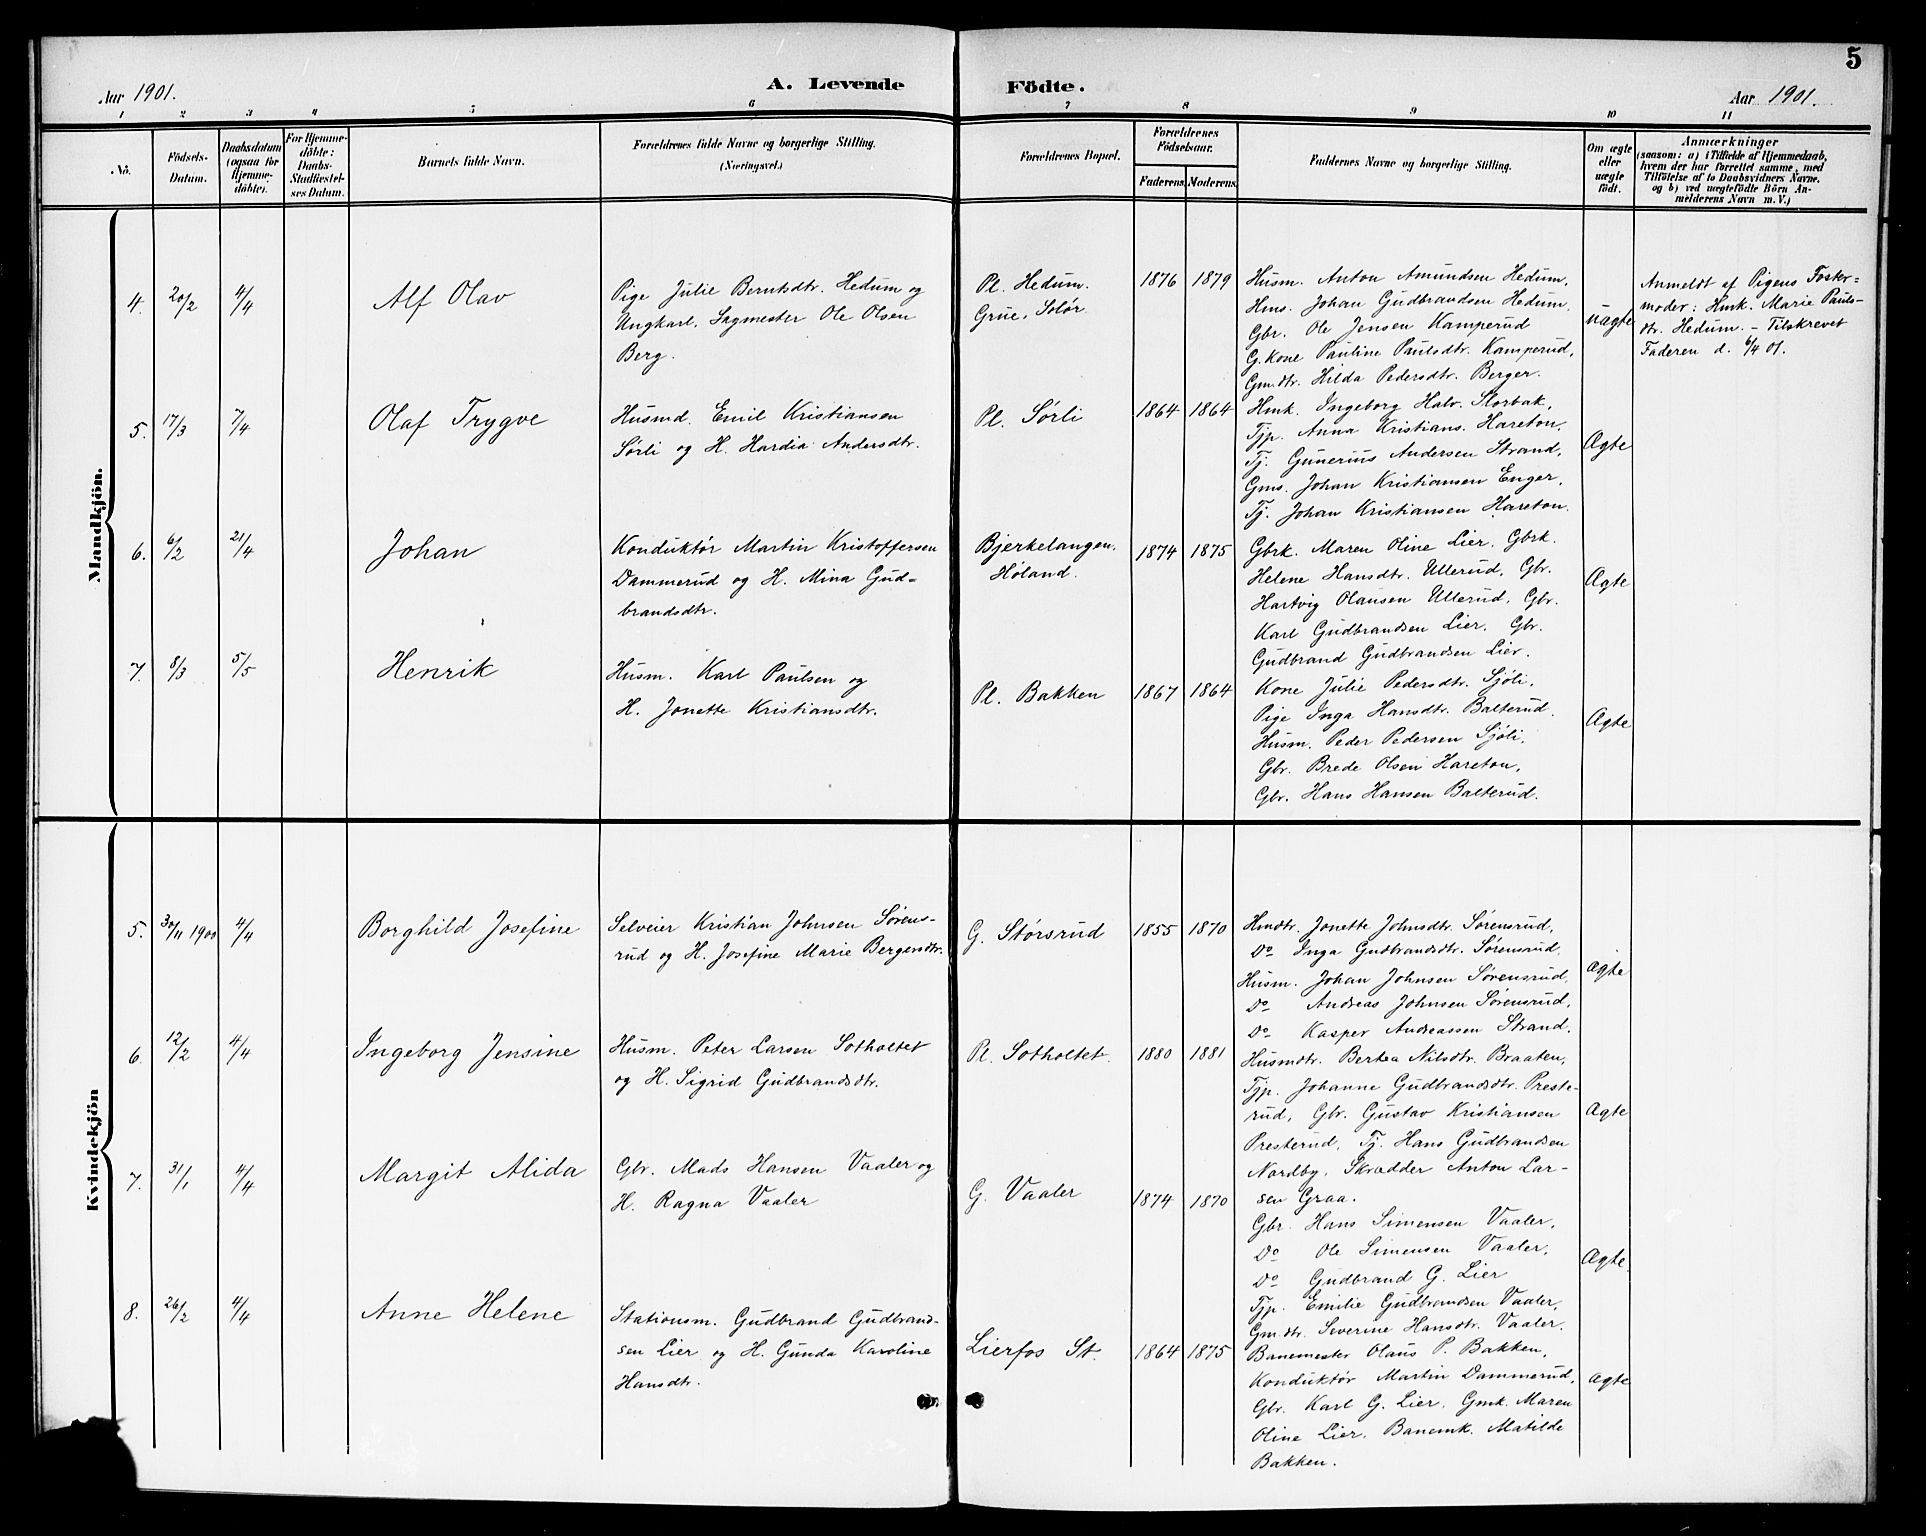 5
Aar 1901.
A. Levende Födte.
Aar 1901.
1 2 3 4 5 6 7 8 9 10 11
No.
Födsels-Datum.
Daabsdatum (ogsaa for Hjemme-döbte).
For Hjemme-döbte: Daabs-Stadfæstel-ses Datum.
Barnets fulde Navn.
Forældrenes fulde Navne og borgerlige Stilling. (Næringsvei.)
Forældrenes Bopæl.
Forældrenes Födselsaar.
Faderens. Moderens.
Faddernes Navne og borgerlige Stilling.
Om ægte eller uægte født.
Anmærkninger
(saasom: a) i Tilfælde af Hjemmedaab,
hvem der har forrettet samme, med
Tilföielse af to Daabsvidners Navne.
og b) ved uægtefödte Börn An-
melderens Navn m. V.)
Mandkjön.
4. 20/2 4/4 Alf Olav
Pige Julie Berntsdtr. Hedum og
Ungkarl, Sagmester Ole Olsen
Berg.
Pl. Hedum.
Grue, Solør.
1876 1879
Husm. Anton Amundsen Hedum,
Hms. Johan Gudbrandsen Hedum,
Gbr. Ole Jensen Kamperud
G.kone Pauline Paulsdtr. Kamperud,
Gm.dtr. Hilda Pedersdtr. Berger.
uægte
Anmeldt af Pigens Foster-
moder: Hmk. Marie Pauls-
dtr. Hedum. – Tilskrevet
Faderen d. 6/4 01.
5. 17/3 7/4 Olaf Trygve
Husmd. Emil Kristiansen
Sørli og H. Hardia Andersdtr.
Pl. Sørli
1864 1864
Hmk. Ingeborg Halv. Storbak,
Tjp. Anna Kristians. Hareton,
Tj. Gunerius Andersen Strand,
Gms. Johan Kristiansen Enger,
Tj. Johan Kristiansen Hareton.
Ægte
6. 6/2 21/4 Johan
Konduktør Martin Kristoffersen
Dammerud og H. Mina Gud-
brandsdtr.
Bjerkelangen.
Høland.
1874 1875
Gbrk. Maren Oline Lier, Gbrk.
Helene Hansdtr. Ullerud, Gbr.
Hartvig Olausen Ullerud, Gbr.
Karl Gudbrandsen Lier, Gbr.
Gudbrand Gudbrandsen Lier.
Ægte
7. 8/3 5/5 Henrik
Husm. Karl Paulsen og
H. Jonette Kristiansdtr.
Pl. Bakken
1867 1864
Kone Julie Pedersdtr. Sjöli,
Pige Inga Hansdtr. Balterud,
Husm. Peder Pedersen Sjöli,
Gbr. Brede Olsen Hareton,
Gbr. Hans Hansen Balterud.
Ægte
Kvindekjön
5. 30/11 1900 4/4 Borghild Josefine
Selveier Kristian Johnsen Sørens-
rud og H. Josefine Marie Bergersdtr.
G. Størsrud
1855 1870
Hmdtr. Jonette Johnsdtr. Sørensrud,
Do Inga Gudbrandsdtr. Sørensrud,
Husm. Johan Johnsen Sørensrud,
Do Andreas Johnsen Sørensrud,
Do Kasper Andreassen Strand.
Ægte
6. 12/2 4/4 Ingeborg Jensine
Husm. Peter Larsen Sotholtet
og H. Sigrid Gudbrandsdtr.
Pl. Sotholtet.
1880 1881
Husmdtr. Bertea Nilsdtr. Braaten,
Tjp. Johanne Gudbrandsdtr. Preste-
rud, Gbr. Gustav Kristiansen
Presterud, Tj. Hans Gudbrandsen
Nordby, Skrædder Anton Lar-
sen Graa.
Ægte
7. 31/1 4/4 Margit Alida
Gbr. Mads Hansen Vaaler og
H. Ragna Vaaler
G. Vaaler
1874 1870
Gbr. Hans Simensen Vaaler,
Do Ole Simensen Vaaler,
Do Gudbrand G. Lier
Tjp. Emilie Gudbrandsen Vaaler,
Gm.dtr. Severine Hansdtr. Vaaler.
Ægte.
8. 26/2 4/4 Anne Helene
Stationsm. Gudbrand Gudbrand-
sen Lier og H. Gunda Karoline
Hansdtr.
Lierfos St.
1864 1875
Banemester Olaus P. Bakken,
Konduktør Martin Dammerud,
Gbr. Karl G. Lier, Gmk. Maren
Oline Lier, Banemk. Matilde
Bakken.
Ægte